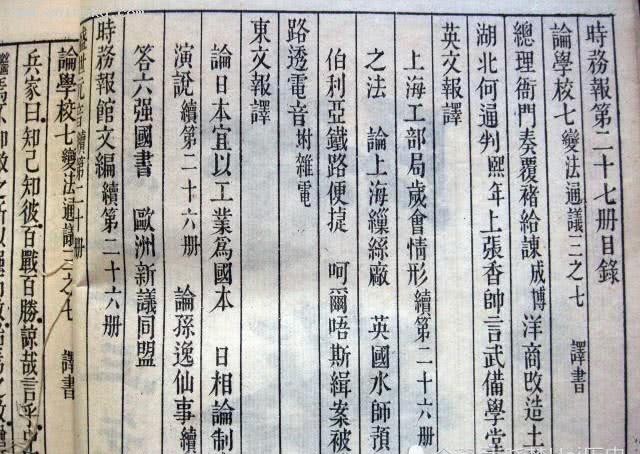 時務報第二十七册目錄
論學校七變法通議三之七 譯書
總理衙門奏覆褚給諫成博 洋商改造土
湖北何通判熙年上張香帥言武備學堂
英文報譯
上海工部局歲會情形續第二十六册
之法 論上海繅絲廠 英國水師預
伯利亞鐵路便捷 呵爾唔斯緝案被
路透電音附雜電
東文報譯
論日本宜以工業爲國本 日相論制
演說續第二十六册 論孫逸仙事續
答六强國書 歐洲新議同盟
時務報館文編續第二十六册
論學校七變法通議三之七 譯書
兵家曰知己知彼百戰百勝諒哉言乎